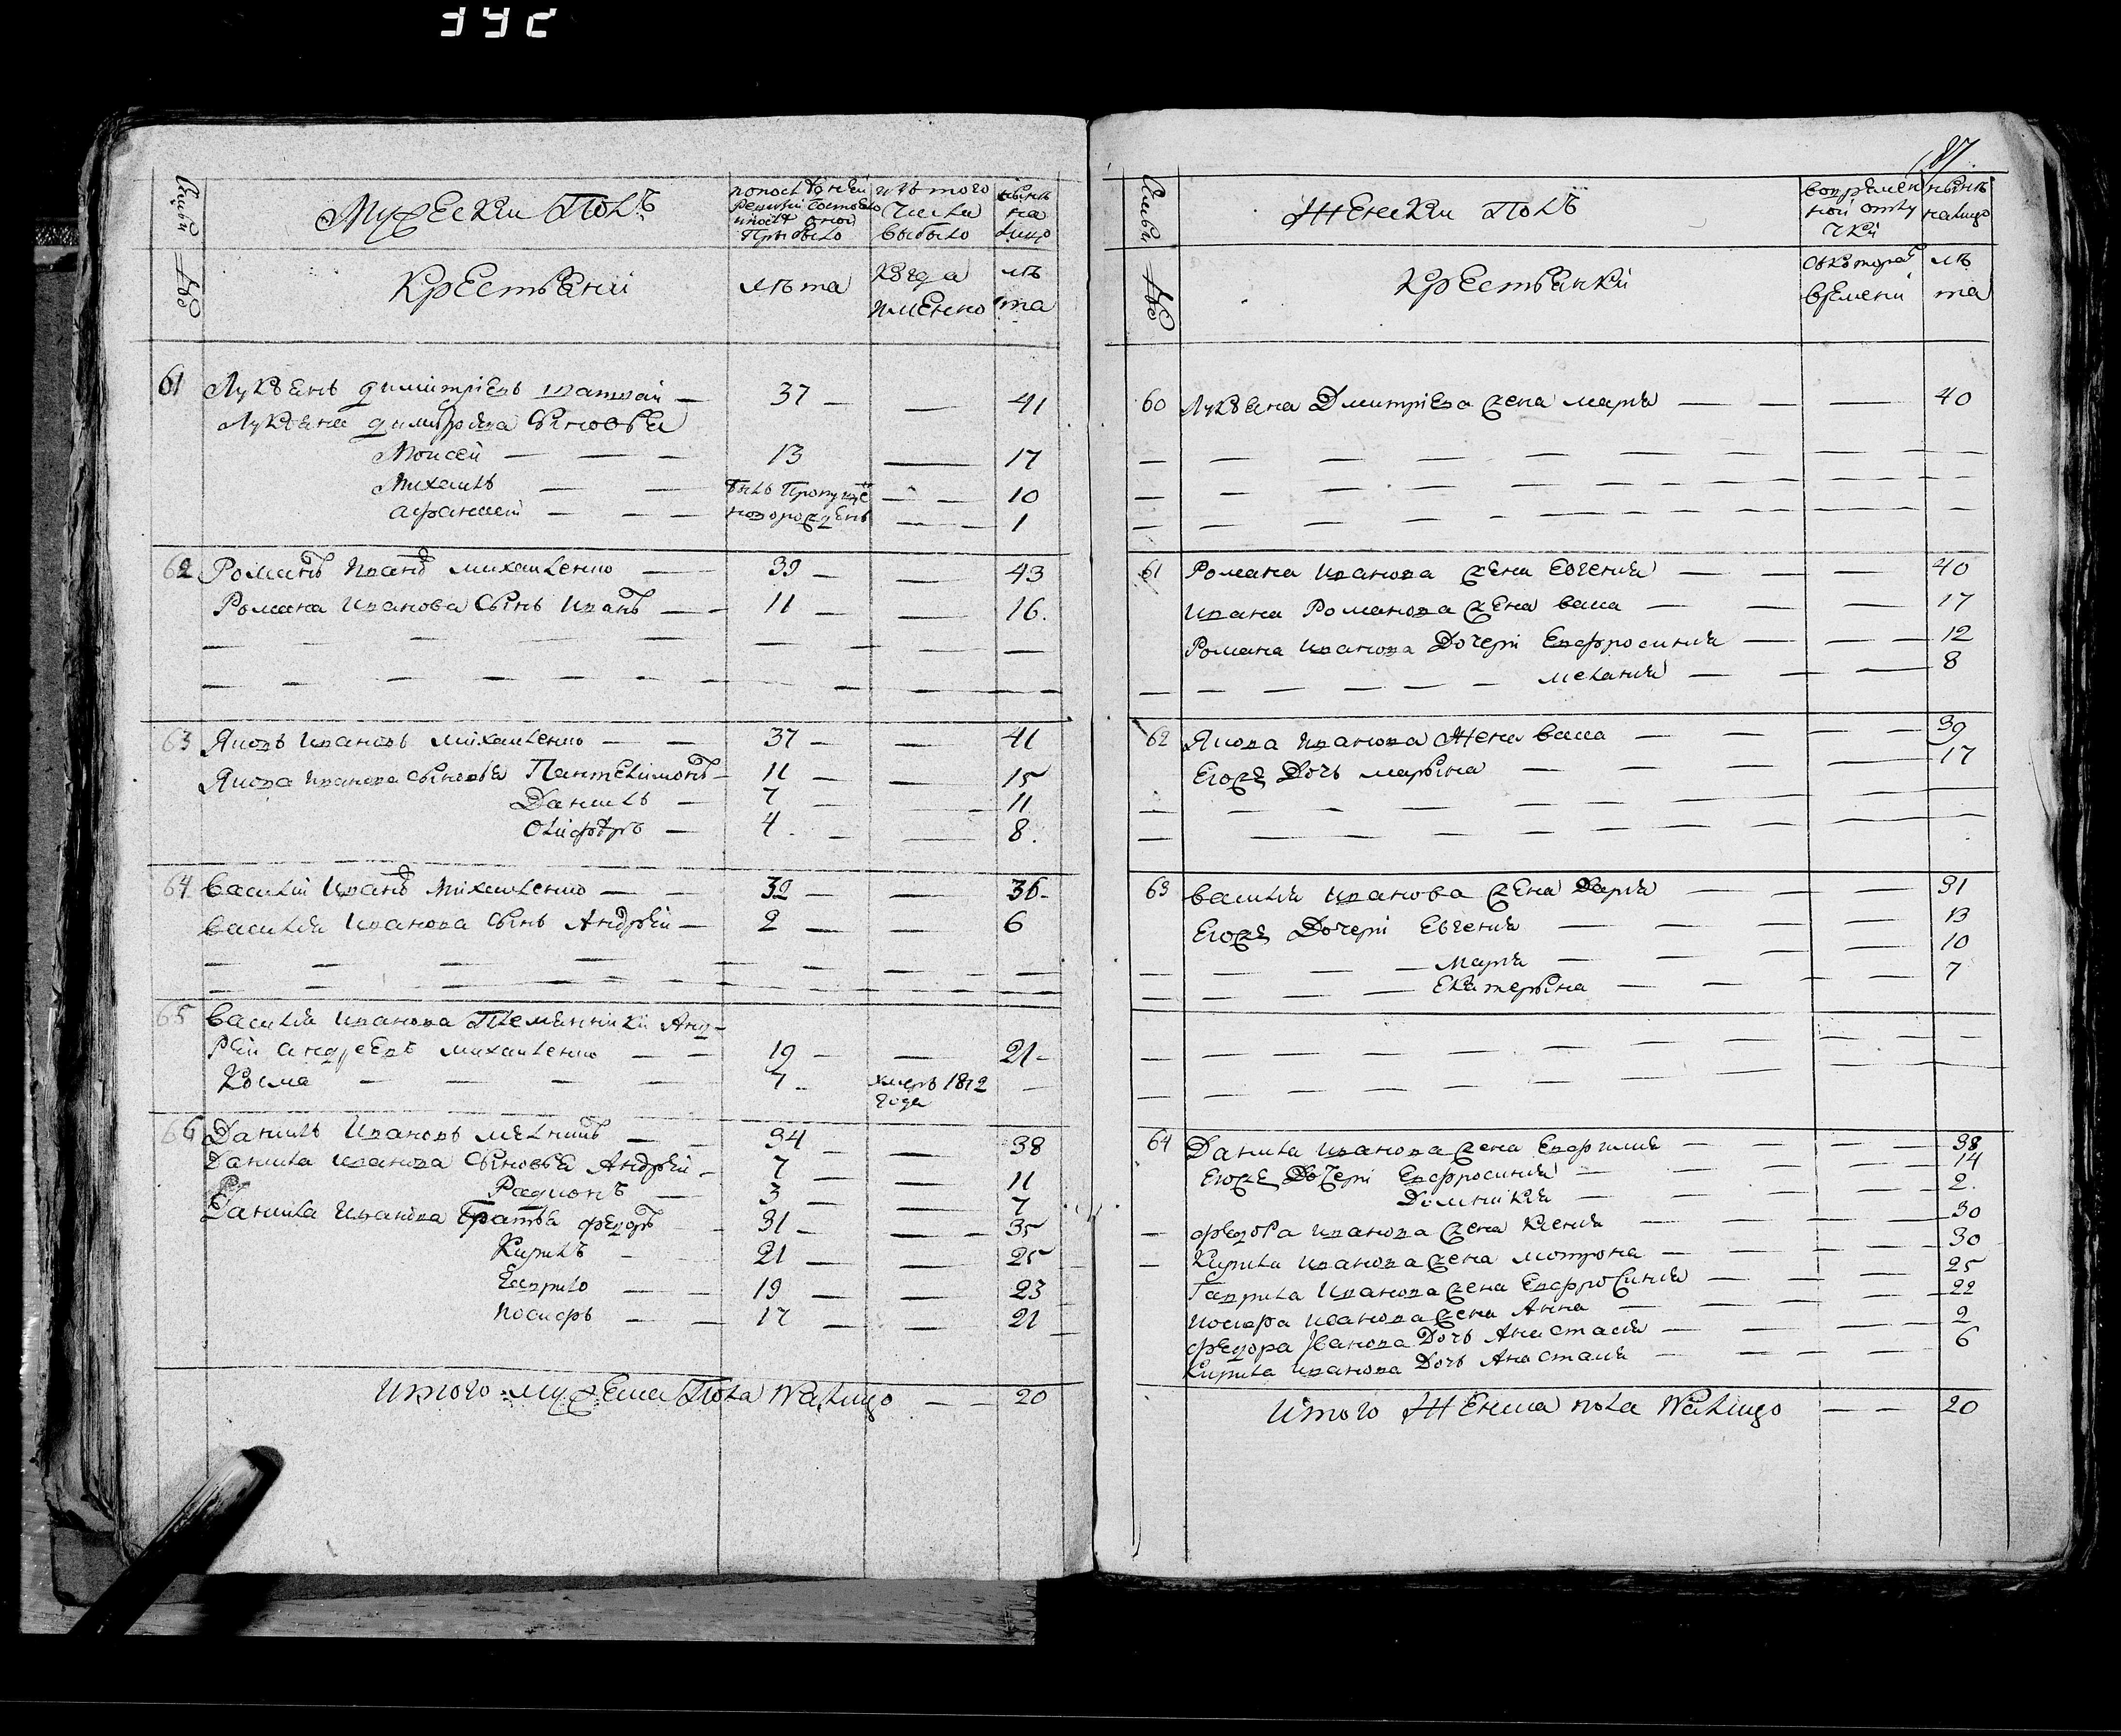 392
Мужеский Полъ
Крестьяни
по последней ревизии состояло и после оной Прибыло
лѣта
изъ того числа выбыло
когда имЕнно
нынѣ на лицо
лѣта
61 Лукьянъ димитріевъ — 37 — — 41
Лукьяна димитріева сыновья
Моисей — — — 13 — 17
Михаилъ — — былъ Пропуще — — 10
афанасей — — — новорожденъ — — 1
62 Романъ Иванов михаиленко — 39 — — 43
Романа Иванова Сынъ Иванъ — — 11 — — 16.
63 Яковъ Ивановъ михаиленко — — 37 — — 41
Якова Иванова сыновья Пантелимонъ — 11 — — 15
Данилъ — 7 — — 11
Олиферъ — 4 — — 8.
64 Василий Иванов Михаиленко — — 32 — — 36 —
Василия Иванова Сынъ Андрѣй — 2 — — 6
65 Василия Иванова Племянники Анд-
рей андреевъ михаиленко — — 19 — — 21 —
Козма — — — — 7 — умеръ 1812 года —
66 Данилъ Ивановъ — — 34 — — 38
Данила Иванова Сыновья Андрѣй — 7 — — 11
Радионъ — 3 — — 7
Данила Иванова Братья федоръ — 31 — — 35
Кирилъ — 21 — — 25
Гаврило — — 19 — — 23
Иосифъ — — 17 — — 21
Итого мужеска Пола На лицо — — 20
87
Женский Полъ
крестьянки
во временной отлучки
съ котораго времени
нынѣ на лицо
лѣта
60 Лукьяна Дмитріева жена марья — — — 40
61 Романа Иванова жена Евгения — — — 40
Ивана Романова жена васа — — — 17
Романа Иванова Дочери Евфросиния — — — 12
мелания — — — 8
62 Якова Иванова Жена васа — — — 39
Егоже Дочь марьина — — — 17
63 василия Иванова жена Дарья — — — 31
Егоже Дочери Евгения — — — 13
Марья — — — 10
Екатерына — — — 7
64 Данила Иванова жена Евфимия — — — 38
Егоже Дочери Евфросиния — — — 14
Доминикия — — — 2.
федора Иванова жена Ксения — — — 30
Кирила Иванова жена мотрона — — — 30
Гаврила Иванова жена Евфросиния — — — 25
Иосифа Иванова жена Анна — — — 22
федора Иванова Дочь Анастасия — — — 2
Кирила Иванова Дочь Анастасия — — — 6
Итого Женска пола На лицо — — 20